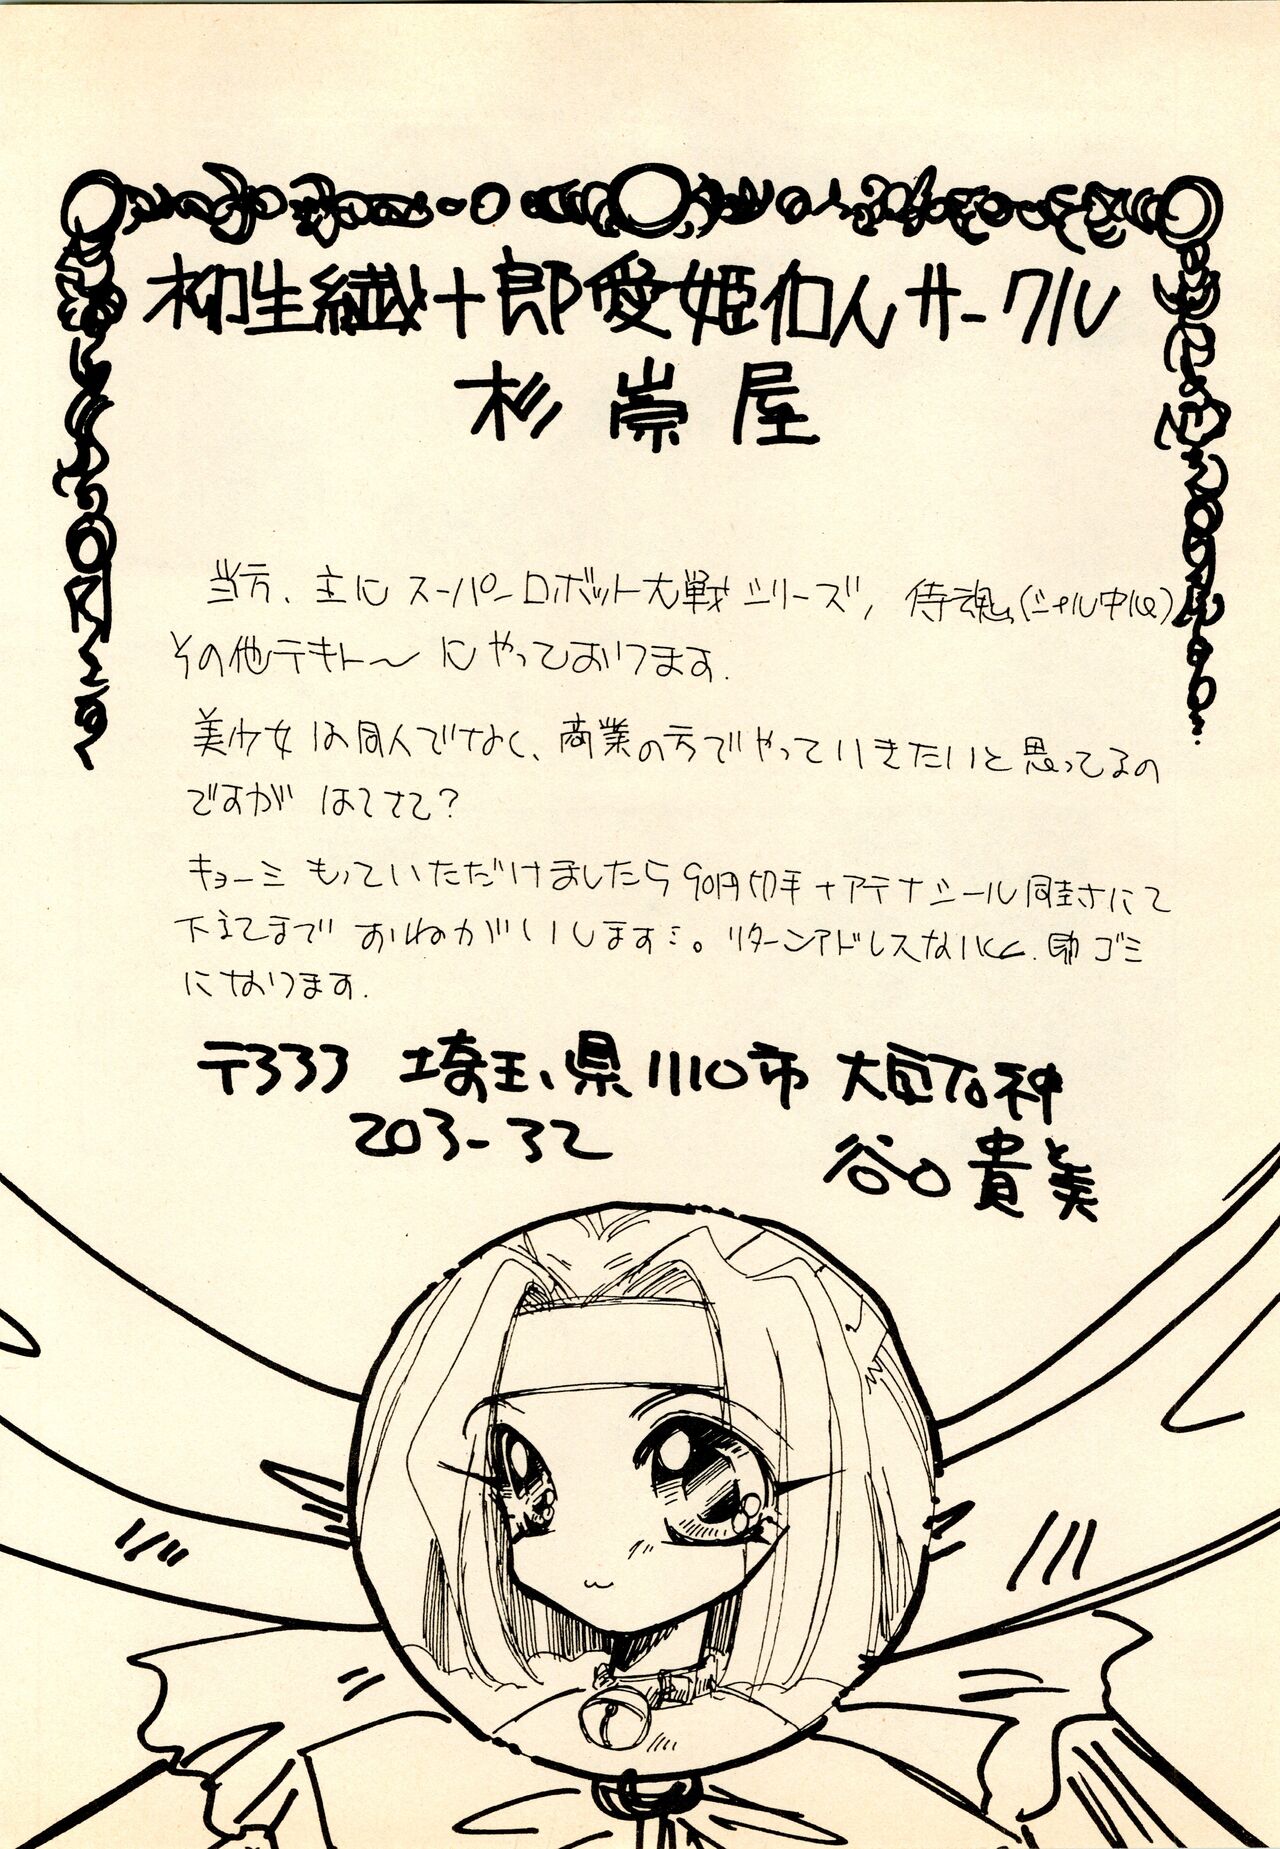 柳生繊十郎愛姫伯人サークル
杉崇屋
当方、主にスーパーロボット大戦シリーズ, 侍魂(シャル中心)
その他テキト〜にやっております.
美少女は同人でなく、商業の方でやっていきたいと思ってるの
ですが はてさて?
キョーミもっていただけましたら90円切手+アテナシール同封さにて
下記まで おねがいします。リターンアドレスな 即ゴミ
になります.
〒333 埼玉県川口市大字石神
203-32 谷口貴美
と